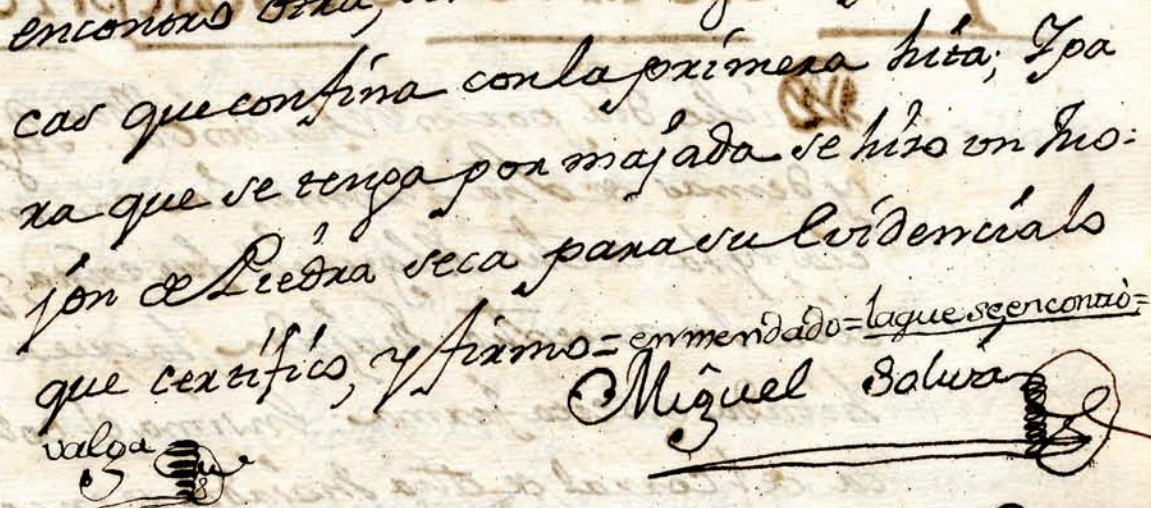 encontro otra,
cas que confina con la primera hita; Ypa
ra que se tenga por majada se hiso un Mo=
jon de Piedra seca para su Evidencia lo
que certifico, y firmo= enmendado=la que se encontrò=
valga
Miguel Salura